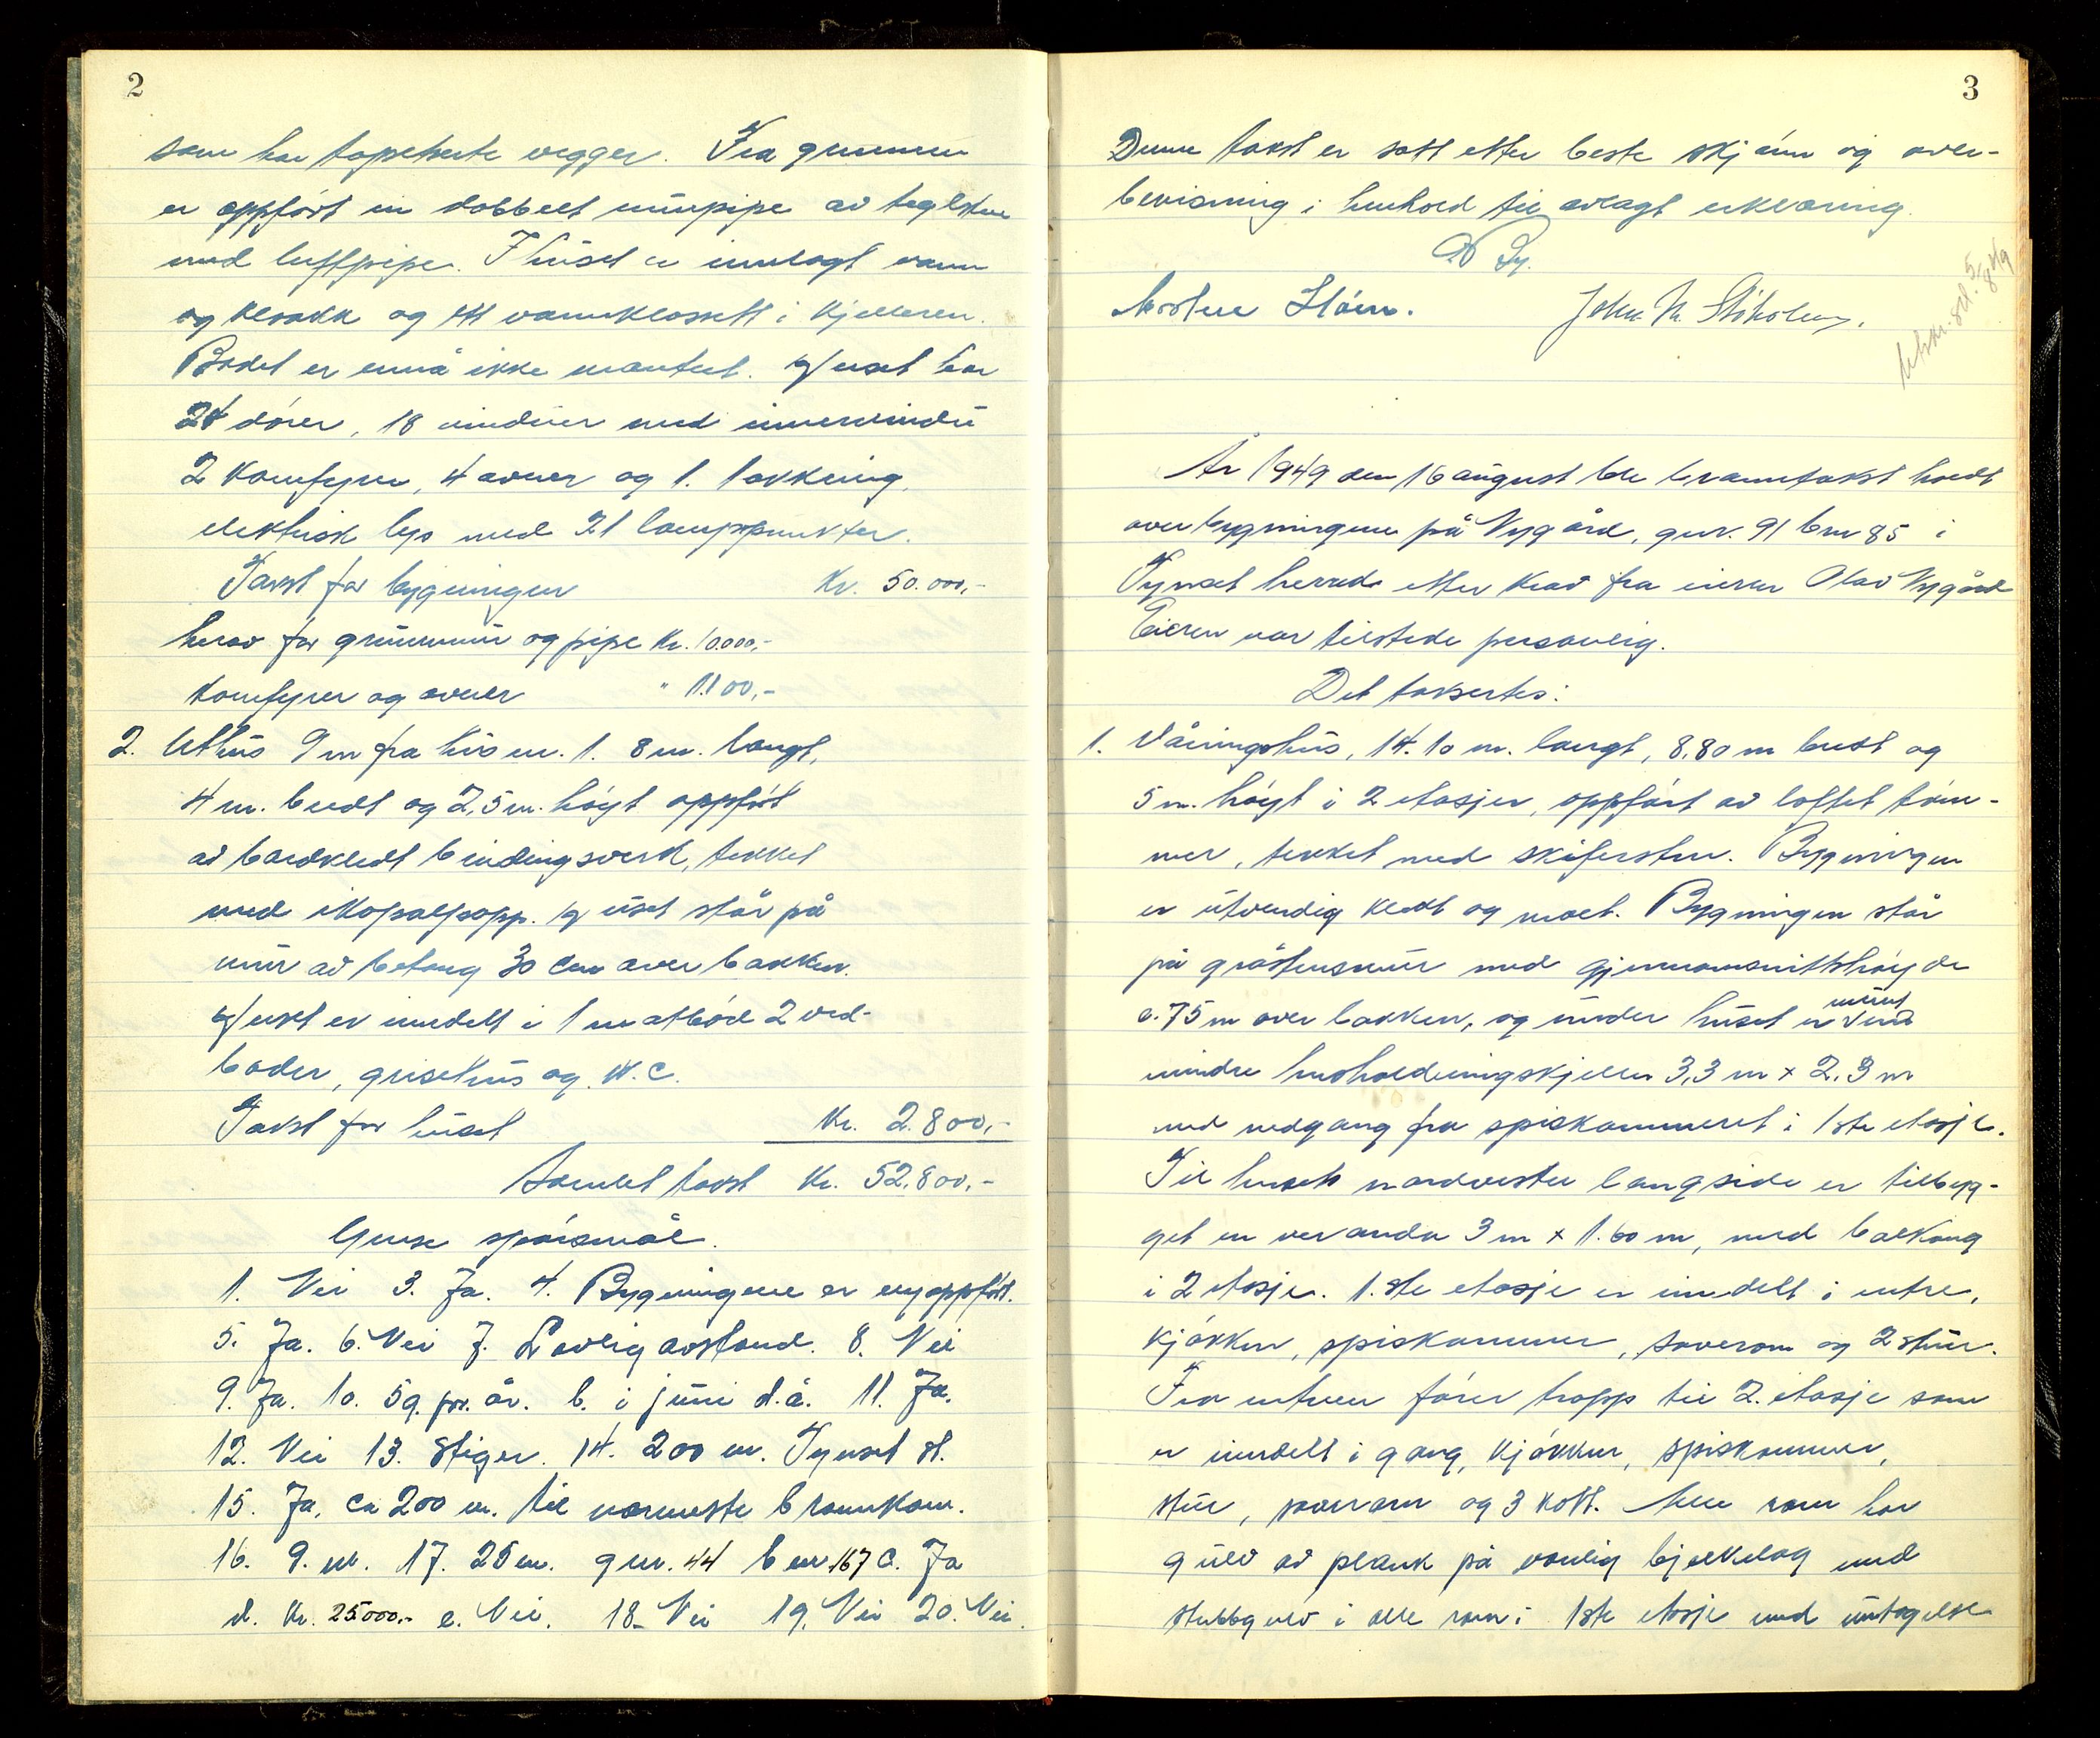 2
som har tapetserte vegger. Fra grunnen
er oppført en dobbelt murpipe av teglsten
med luftpipe. I huset er innlagt vann
og kloakk og ett vannklosett i kjelleren.
Badet er ennå ikke montert. Huset har
24 dører, 18 vinduer med innervindu
2 komfyrer, 4 ovner og 1.
elektrisk lys med 21 lampepunkter.
Takst for bygningen Kr. 50.000,-
herav for grunnmur og pipe Kr. 10.000,-
Komfyrer og ovner " 1100,-
2. Uthus 9 m fra hus nr. 1. 8 m. langt,
4 m. bredt og 2,5 m. høgt oppført
av bordkledt bindingsverk, tekket
med ikopalpapp. Huset står på
mur av betong 30 cm over bakken.
Huset er inndelt i 1 matbod 2 ved-
boder, grisehus og W.C.
Takst for huset Kr. 2.800,-
Samlet takst Kr. 52.800,-
Gense spørsmål.
1. Nei 3. Ja. 4. Bygningene er nyoppført.
5. Ja. 6. Nei 7. Lovlig avstand. 8. Nei
9. Ja. 10. 5 g. pr. år. b. i juni d.å. 11. Ja.
12. Nei 13. Stiger. 14. 200 m. Tynset st.
15. Ja, ca 200 m. til nærmeste brannkom.
16. 9. m. 17. 25 m. gnr. 44 bnr 167 c. Ja
d. Kr. 25000,- e. Nei. 18. Nei 19. Nei 20. Nei.
3
Denne takst er satt etter beste skjønn og over-
bevisning i henhold til avlagt erklæring.
Utskr. sd. 5/8 49
År 1949 den 16 august ble branntakst holdt
over bygningene på Nygård, gnr. 91 bnr 85 i
Tynset herred etter krav fra eieren Olav Nygård
Eieren var tilstede personlig.
Det takseres:
1. Våningshus, 14.10 m. langt, 8,80 m bredt og
5 m. høgt i 2 etasjer, oppført av laftet tøm-
mer, tekket med skifersten. Bygningen
er utvendig kledt og malt. Bygningen står
på gråstensmur med gjennomsnittshøyde
0.75 m over bakken, og under huset er murt
mindre husholdningskjeller 3,3 m x 2.3 m
med nedgang fra spiskammeret i 1ste etasje.
Til husets nordvestre langside er tilbyg-
get en veranda 3 m x 1.60 m, med balkong
i 2 etasje. 1.ste etasje er inndelt i entre,
kjøkken, spiskammer, soverom og 2 stuer.
Fra entreen fører trapp til 2. etasje som
er inndelt i gang, kjøkken, spiskammer,
stue, soverom og 3 kott. Alle rom har
gulv av plank på vanlig bjelkelag med
stubbgulv i alle rom i 1ste etasje med untagelse